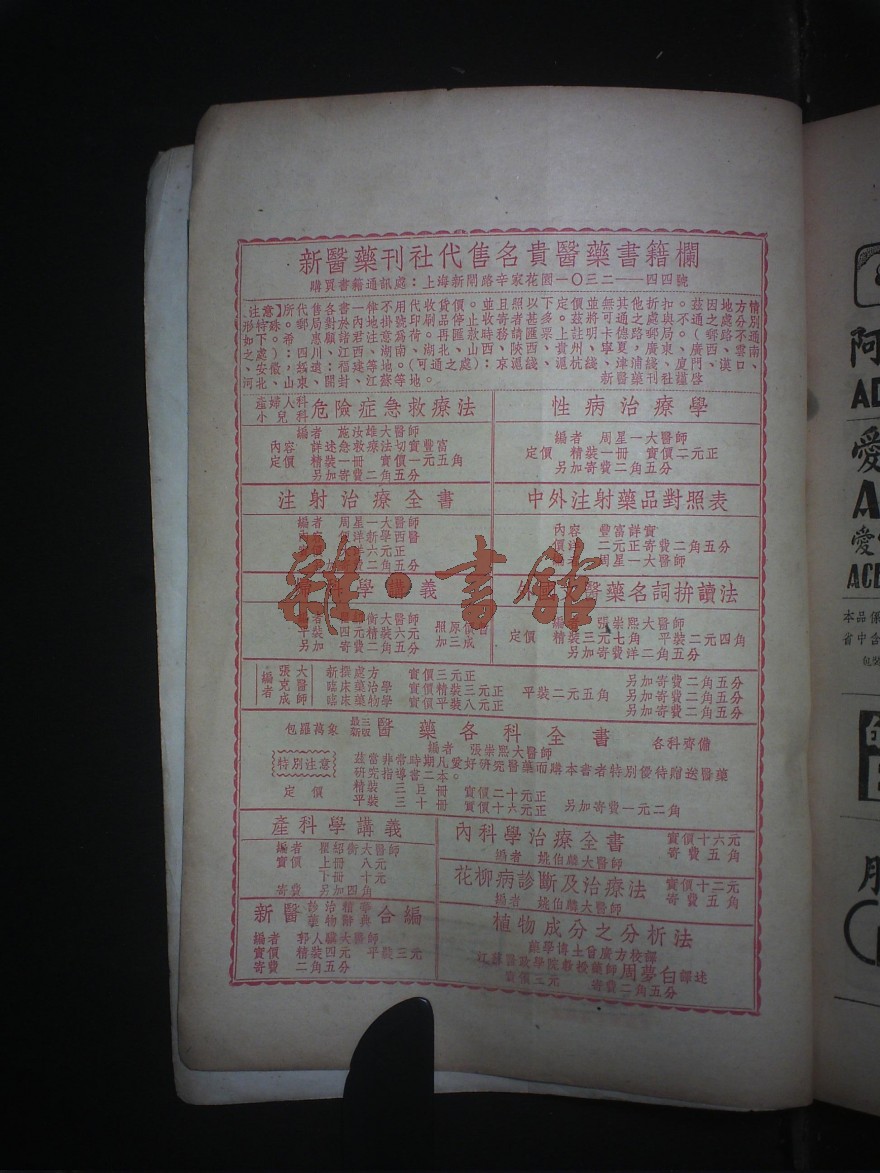 新醫藥刊社代售名貴醫藥書籍欄
購買書籍通訊處：上海新閘路辛家花園一〇三二一一四四號
【注意】所代售各書一律不用代收貨價。並且照以下定價並無其他折扣。茲因地方情
形特殊。郵局對於內地掛號印刷品停止收寄者甚多。茲將可通之處與不通之處分別
如下。希 惠顧諸君注意為荷。再匯款時務請匯票上註明卡德路郵局。（郵路不通
之處）：四川、江西、湖南、湖北、山西、陝西、貴州、寧夏，廣東、廣西、雲南
、安徽，綏遠：福建等地。（可通之處）：京滬綫、滬杭綫、津浦綫、廈門、漢口、
河北、山東、開封、江蘇等地。 新醫藥刊社謹啓
產婦人科
小兒科
危險症急救療法
編者 施汝雄大醫師
內容 詳述急救療法切實豐富
定價 精裝一冊 實價一元五角
另加寄費二角五分
性病治療學
編者 周星一大醫師
定價 精裝一冊 實價二元正
另加寄費二角五分
注射治療全書
編者 周星一大醫師
洋新學西醫
洋六元正
加寄費二角五分
中外注射藥品對照表
內容 豐富詳實
價洋 二元正寄費二角五分
周星一大醫師
學講義
衡大醫師
平裝四元精裝六元
另加寄費二角五分
照原價
加三成
醫藥名詞拼讀法
張崇熙大醫師
定價 精裝三元七角 平裝二元四角
另加寄費洋二角五分
編者
張克成
大醫師
新撰處方 實價三元正 另加寄費二角五分
臨床藥治學 實價精裝三元正 平裝二元五角 另加寄費二角五分
臨床藥物學 實價平裝八元正 另加寄費二角五分
包羅萬象
最新三版
醫藥各科全書
各科齊備
編者 張崇熙大醫師
特別注意
茲當非常時期凡愛好研究醫藥而購本書者特別優待贈送醫藥
研究指導書二本。
定價
精裝 三巨冊 實價二十元正
平裝 三十冊 實價十六元正 另加寄費一元二角
產科學講義
編者 瞿紹衡大醫師
實價 上冊 八元
下冊 十元
寄費 另加四角
內科學治療全書
編者 姚伯麟大醫師
實價十六元
寄費五角
花柳病診斷及治療法
編者 姚伯麟大醫師
實價十二元
寄費五角
新醫
診治精華
藥物辭典
合編
編者 郭人驥大醫師
實價 精裝四元 平裝三元
寄費 二角五分
植物成分之分析法
藥學博士曾廣方校訂
江蘇醫政學院教授藥師周夢白譯述
實價三元 寄費二角五分
雜·書館
阿
AD
愛
A
愛
ACE
本品係
省中含
包裝